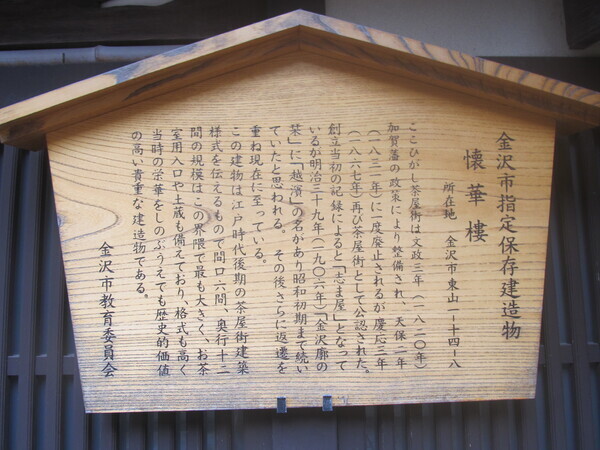 金沢市指定保存建造物
懐華樓
所在地 金沢市東山一ー十四ー八
ここひがし茶屋街は文政三年(一八二〇年)
加賀藩の政策により整備され、天保二年
(一八三一年)に一度廃止されるが慶応三年
(一八六七年)再び茶屋街として公認された。
創立当初の記録によると「志ま屋」となって
いるが明治三十九年(一九〇六年)「金沢廓の
栞」に「越濱」の名があり昭和初期まで続い
ていたと思われる。その後さらに返遷を
重ね現在に至っている。
この建物は江戸時代後期の茶屋街建築
様式を伝えるもので間口六間、奥行十二
間の規模はこの界隈で最も大きく、お茶
室用入口や土蔵も備えており、格式も高く
当時の栄華をしのぶうえでも歴史的価値
の高い貴重な建造物である。
金沢市教育委員会